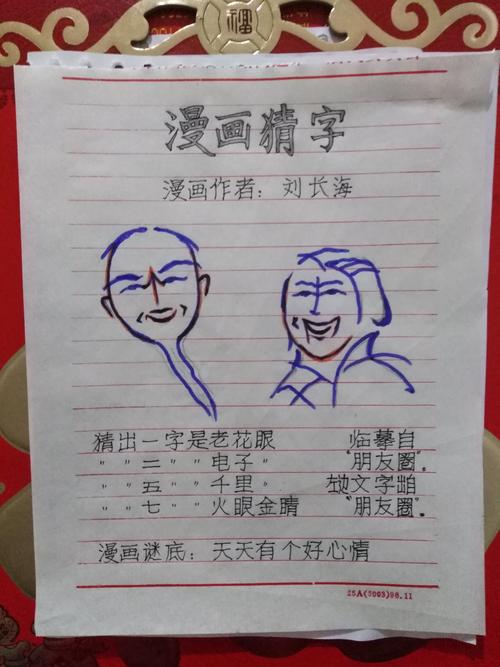 漫画猜字
漫画作者：刘长海
猜出一字是老花眼 临摹自
〃 〃 二 〃 〃 电子 〃 "朋友圈"。
〃 〃 五 〃 〃 千里 〃 文字
〃 〃 七 〃 〃 火眼金睛 "朋友圈"。
漫画谜底：天天有个好心情
25A(5003)98.11